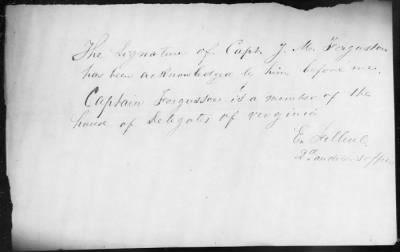 The Signature of Capt. J. M. Fergusson
has been acknowledged to him before me.
Captain Fergusson is a member of the
house of Delegates of verginia
2d auditors office